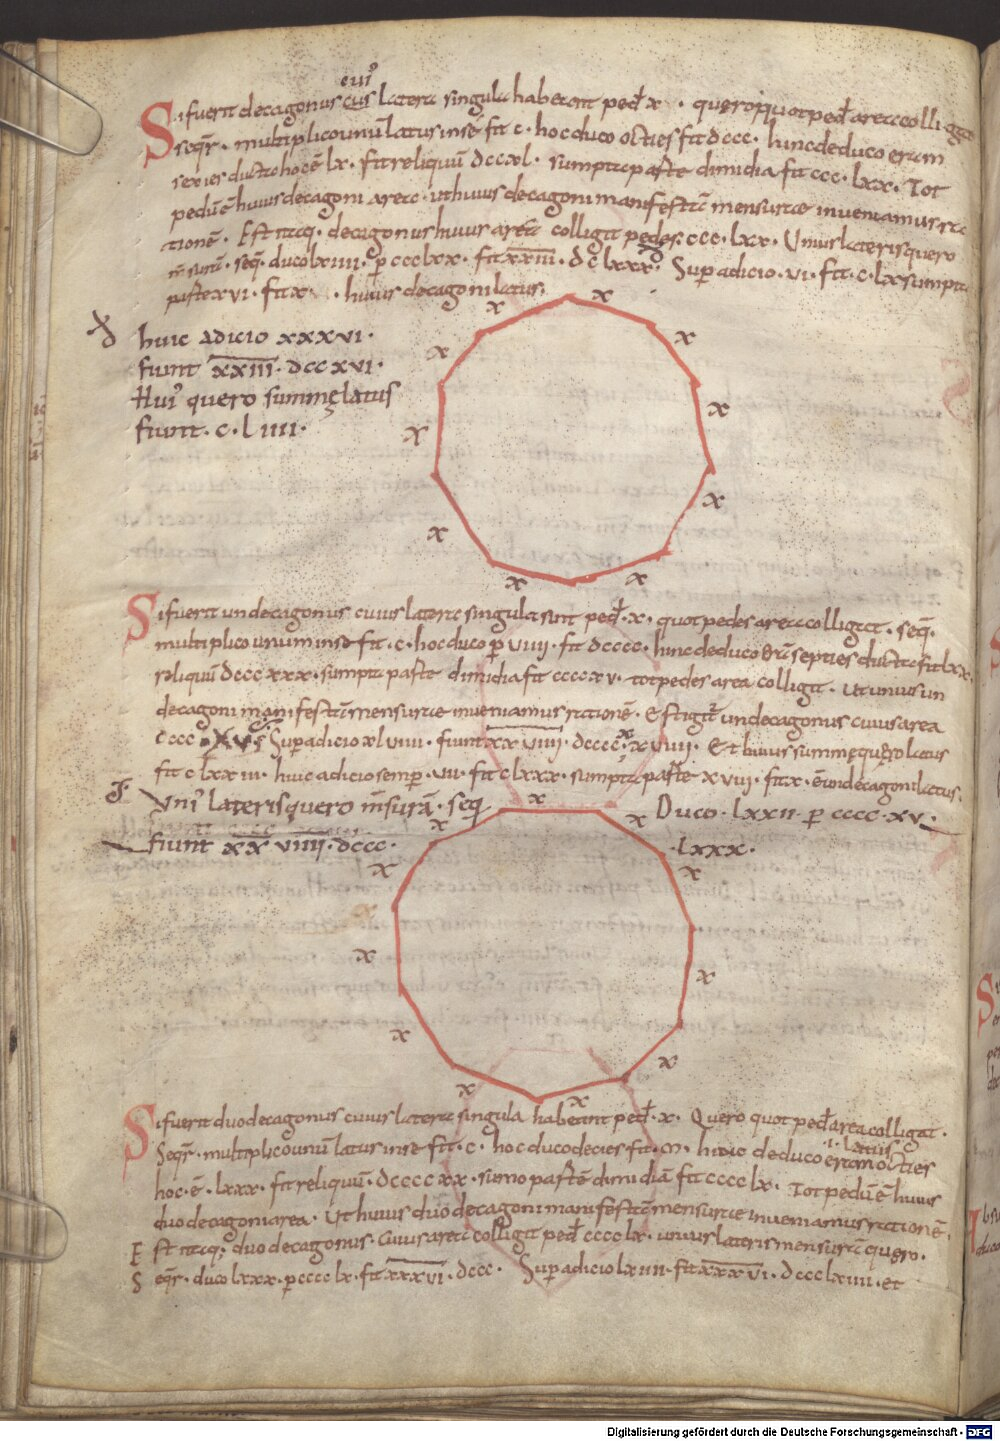 cuiꝰ
Si fuerit decagonus cuius latera singula habeant ped̄ x · quero quot ped̄ area colligat
seqr̄ · multiplico unū latus in se fit · c · hoc duco octies fit dccc · hinc deduco eram
sexies ductā hoc ē lx · fit reliquū dccxl · sumpta parte dimidia fit ccc · lxx · Tot
pedū ē huius decagoni area · ut huius decagoni manifestā mensurae inveniamus ra
tionē · Est itaq · decagonus huius area colligit pedes ccc · lxx · Unius lateris quero
m̄surā · seq̄ · duco lxiiii · p ccclxx · fit xxiii · dclxxx · Sup adicio · vi · fit · c · lx sumpta
parte xvi · fit x · huius decagoni latus
huic adicio xxxvi ·
fiunt xxiii · dccxvi ·
Huiꝰ quero summę latus
fiunt · c · liiii ·
x x x x x x x x x x
Si fuerit undecagonus cuius latera singula sint ped̄ · x · quot pedes area colligat · seq̄ ·
multiplico unum in se fit · c · hoc duco p viiii · fit dcccc · hinc deduco erā septies ductā fit lxx ·
reliquū dcccxxx · sumpta parte dimidia fit ccccxv · tot pedes area colligit · Ut unius un
decagoni manifestā mensurae inveniamus rationē · Est igit̄ undecagonus cuius area
cccc · xv · Sup adicio xlviiii · fiunt xxviiii · dcccc · xxviiii · Et huius summę quero latus
fit clxxiii · huic adicio semp · vii · fit clxxx · sumpta parte xviii · fit x · ē undecagoni latus ·
Uniꝰ lateris quero m̄surā · seq̄ Duco · lxxii · p cccc · xv ·
fiunt xxviiii · dccc · lxxx ·
x x x x x x x x x x x
Si fuerit duodecagonus cuius latera singula habeant ped̄ · x · Quero quot ped̄ area colligat ·
·i· latus
Seqr̄ · multiplico unū latus in se fit · c · hoc duco decies fit · m · hinc deduco eram octies
hoc · ē · lxxx · fit reliquū · dccccxx · sumo partē dimidiā fit cccclx · Tot pedū ē huius
duodecagoni area · Ut huius duodecagoni manifestā mensurae inveniamus rationē ·
Est itaq; duodecagonus · cuius area colligit ped̄ cccclx · unius lateris mensurā quero ·
Seqr̄ · duco lxxx · p cccclx · fit xxxvi · dccc · Sup adicio lxiiii · fit xxxvi · dccclxiiii · et
Digitalisierung gefördert durch die Deutsche Forschungsgemeinschaft - DFG